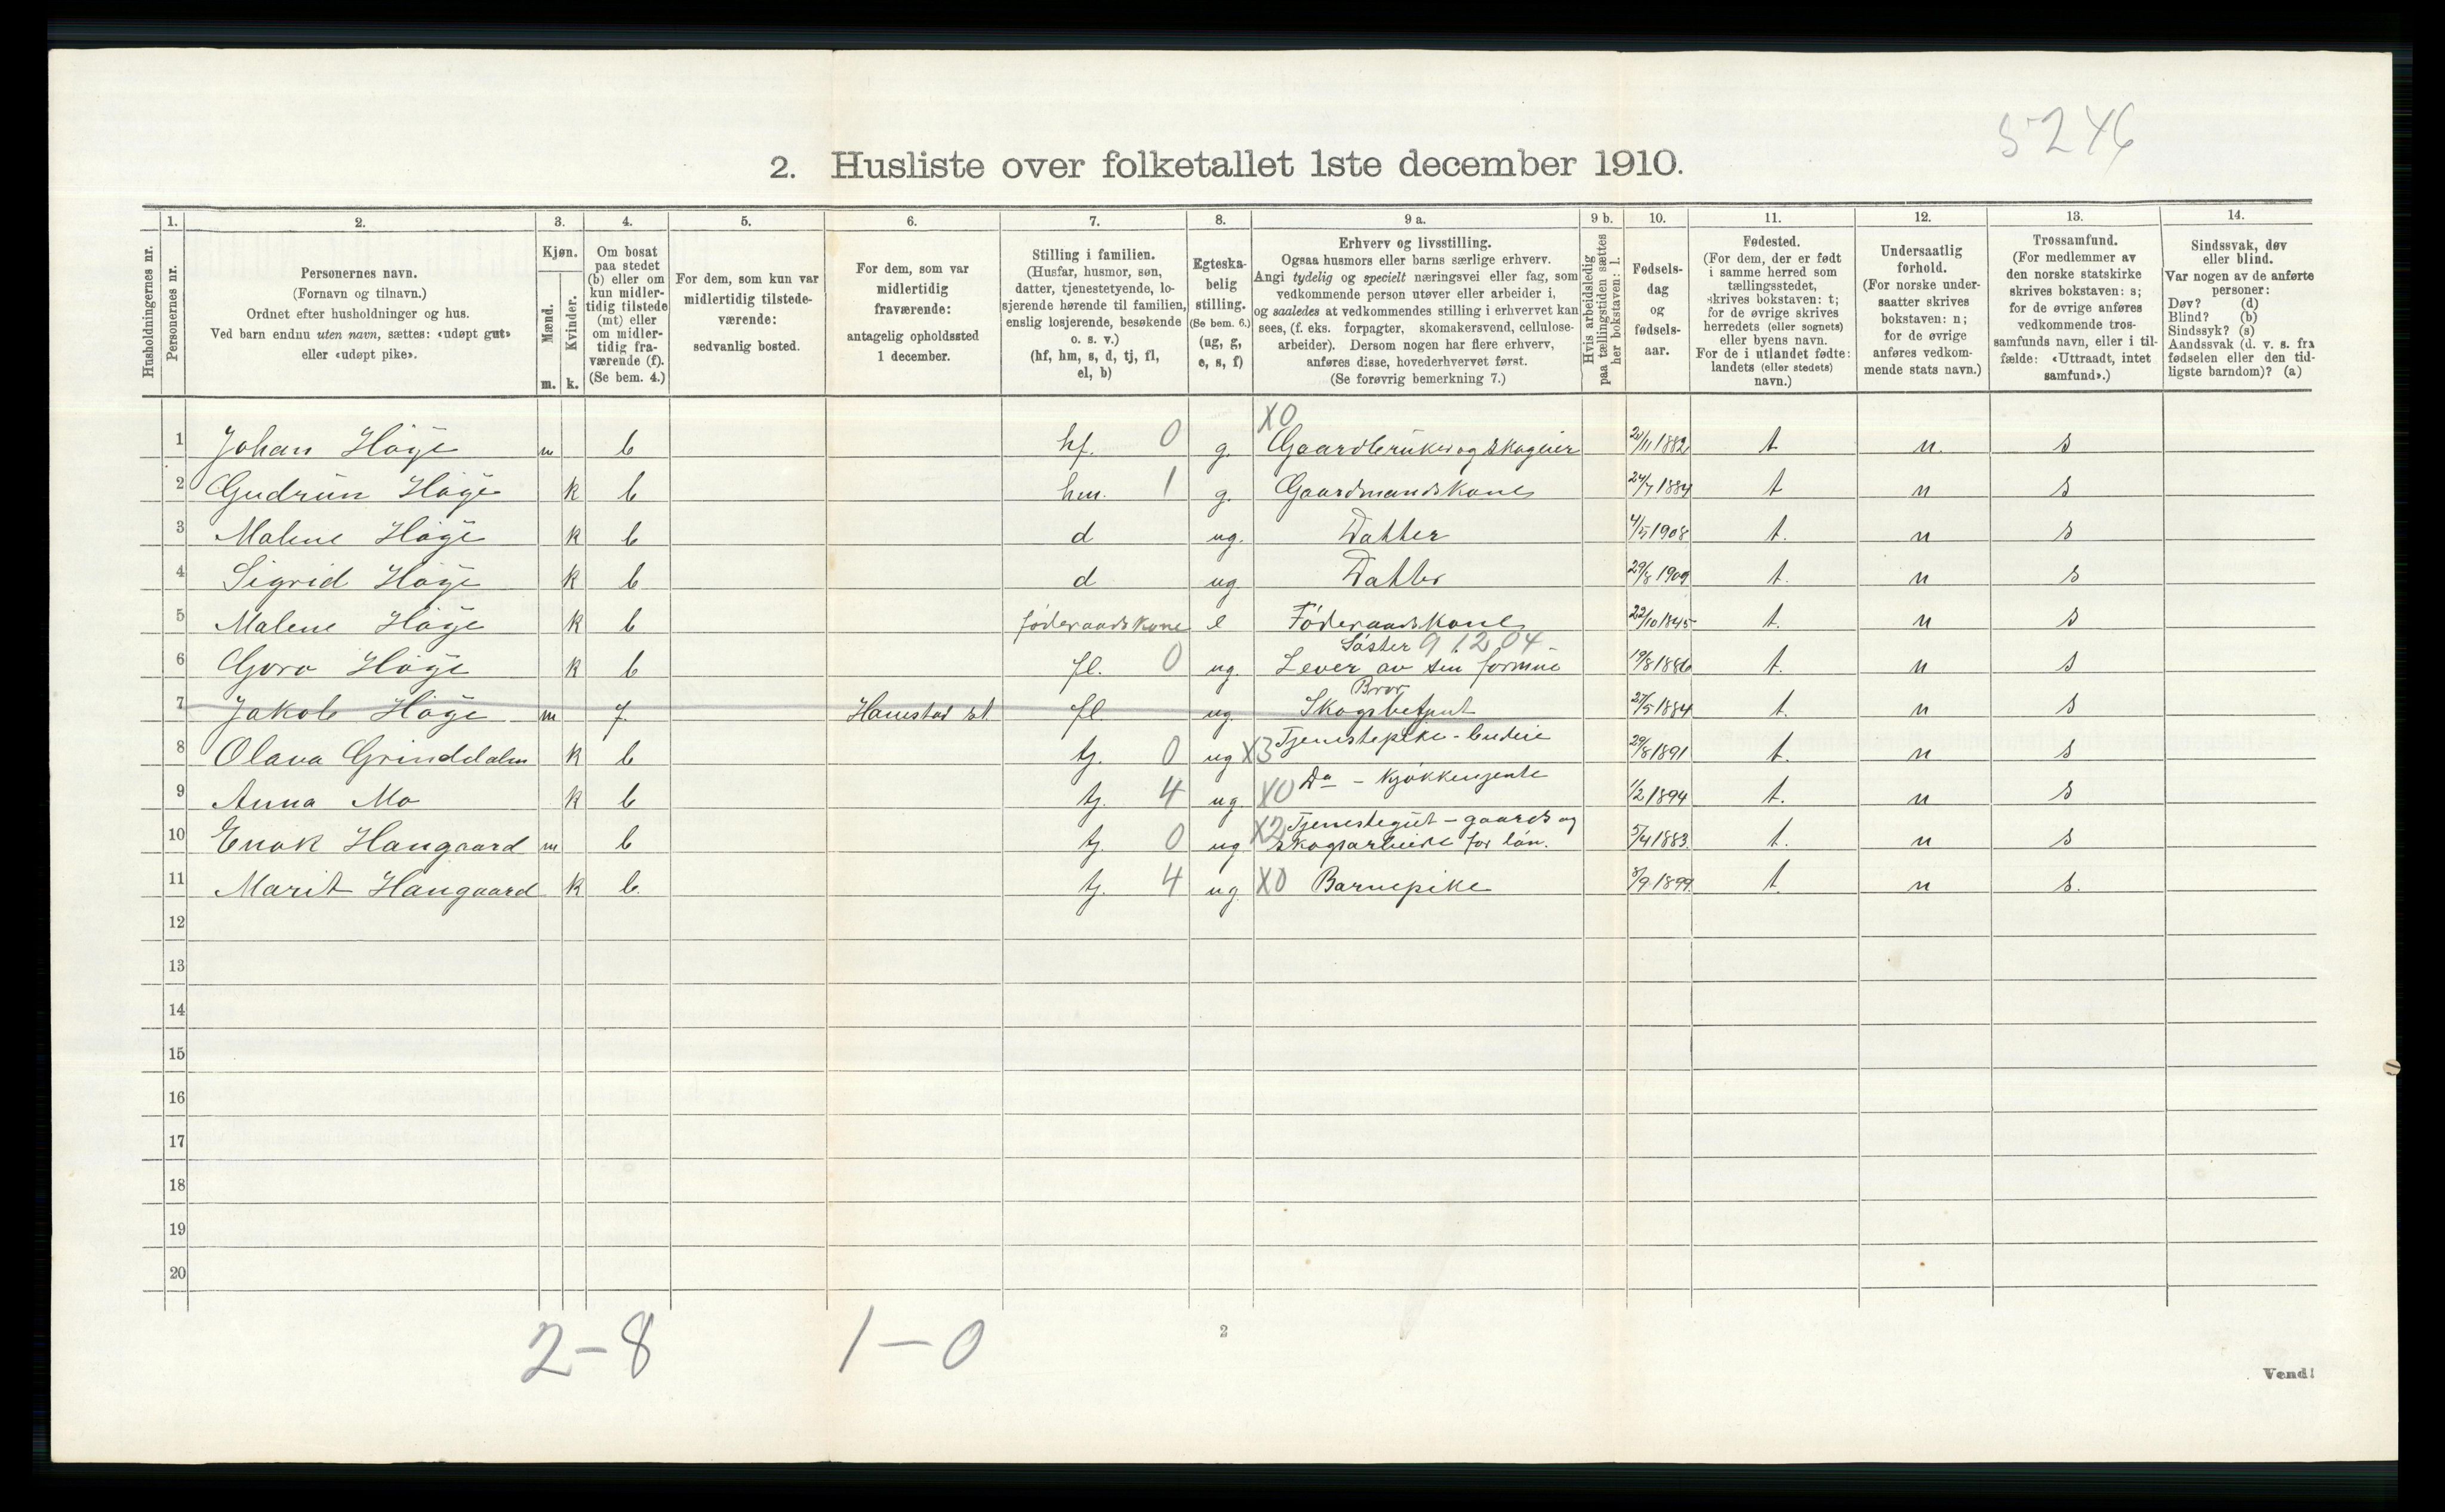 5246
2. Husliste over folketallet 1ste december 1910.
Husholdningernes nr.
1.
Personernes nr.
2.
Personernes navn.
(Fornavn og tilnavn.)
Ordnet efter husholdninger og hus.
Ved barn endnu uten navn, sættes: «udøpt gut»
eller «udøpt pike».
3.
Kjøn.
Mænd.
Kvinder.
m. k.
4.
Om bosat
paa stedet
(b) eller om
kun midler-
tidig tilstede
(mt) eller
om midler-
tidig fra-
værende (f).
(Se bem. 4.)
5.
For dem, som kun var
midlertidig tilstede-
værende:
sedvanlig bosted.
6.
For dem, som var
midlertidig
fraværende:
antagelig opholdssted
1 december.
7.
Stilling i familien.
(Husfar, husmor, søn,
datter, tjenestetyende, lo-
sjerende hørende til familien,
enslig losjerende, besøkende
o. s. v.)
(hf, hm, s, d, tj, fl,
el, b)
8.
Egteska-
belig
stilling.
(Se bem. 6.)
(ug, g,
e, s, f)
9 a.
Erhverv og livsstilling.
Ogsaa husmors eller barns særlige erhverv.
Angi tydelig og specielt næringsvei eller fag, som
vedkommende person utøver eller arbeider i,
og saaledes at vedkommendes stilling i erhvervet kan
sees, (f. eks. forpagter, skomakersvend, cellulose-
arbeider). Dersom nogen har flere erhverv,
anføres disse, hovederhvervet først.
(Se forøvrig bemerkning 7.)
9 b.
Hvis arbeidsledig
paa tællingstiden sættes
her bokstaven: l.
10.
Fødsels-
dag
og
fødsels-
aar.
11.
Fødested.
(For dem, der er født
i samme herred som
tællingsstedet,
skrives bokstaven: t;
for de øvrige skrives
herredets (eller sognets)
eller byens navn.
For de i utlandet fødte:
landets (eller stedets)
navn.)
12.
Undersaatlig
forhold.
(For norske under-
saatter skrives
bokstaven: n;
for de øvrige
anføres vedkom-
mende stats navn.)
13.
Trossamfund.
(For medlemmer av
den norske statskirke
skrives bokstaven: s;
for de øvrige anføres
vedkommende tros-
samfunds navn, eller i til-
fælde: «Uttraadt, intet
samfund».)
14.
Sindssvak, døv
eller blind.
Var nogen av de anførte
personer:
Døv? (d)
Blind? (b)
Sindssyk? (s)
Aandssvak (d. v. s. fra
fødselen eller den tid-
ligste barndom)? (a)
X0
1 Johan Höye m b hf. 0 g. Gaardbruker og skogeier 20/11 1882 t n. s
2 Gudrun Höye k b hm. 1 g. Gaardmandskone 24/7 1884 t n s
3 Malene Höye k b d ug. Datter 4/5 1908 t. n s
4 Sigrid Höye k b d ug. Datter 29/8 1909 t. n s
5 Malene Höye k b føderaadskone e Føderaadskone 22/10 1845 t. n s
Søster 9.12.04
6 Goro Höye k b fl. 0 ug. Lever av sin formue 19/8 1886 t. n s
Bror
7 Jakob Höye m f. Hanestad st fl ug. 27/5 1884 t. n s
8 Olava Grinddalen k b tj. 0 ug X3 Tjenestepike - budeie 29/8 1891 t. n s
9 Anna Mo k b tj. 4 ug. X0 Do - Kjøkkenjente 1/2 1894 t. n s
10 Enok Haugaard m b tj. 0 ug. X2 Tjenestegut - gaards og
skogsarbeide for løn. 5/4 1883 t. n s
11 Marit Haugaard k b. tj. 4 ug X0 Barnepike 8/9 1899. t. n s.
12
13
14
15
16
17
18
19
20
2 - 8
1 - 0
2
Vend!